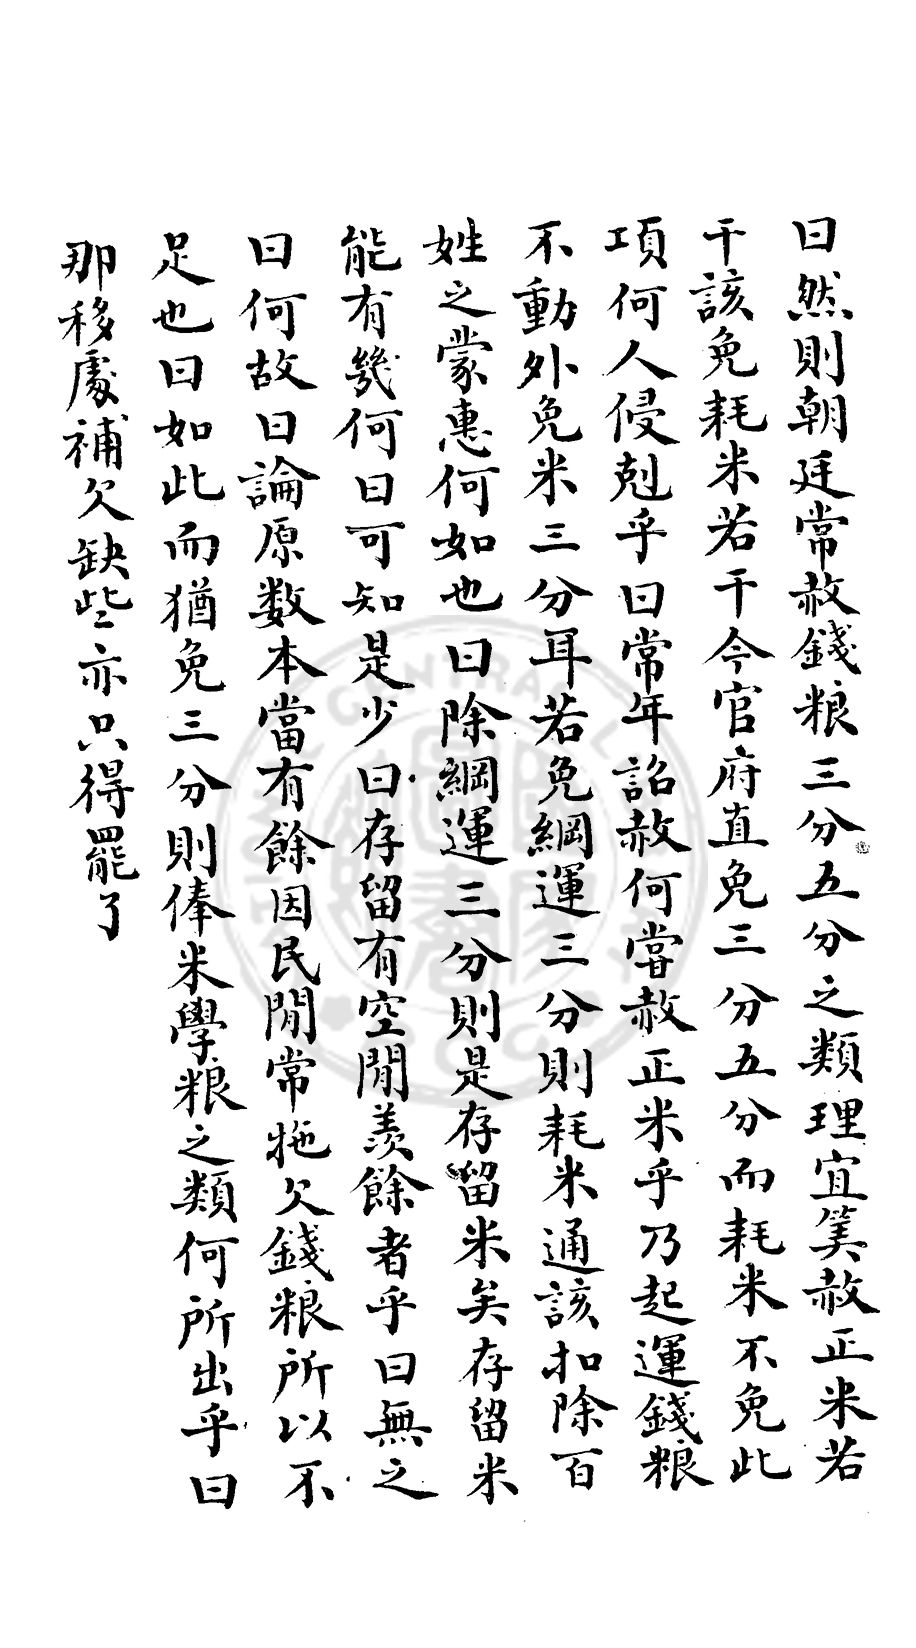 曰然則朝廷常赦錢粮三分五分之類理宜筭赦正米若
干該免耗米若干今官府直免三分五分而耗米不免此
項何人侵剋乎曰常年詔赦何嘗赦正米乎乃起運錢粮
不動外免米三分耳若免綱運三分則耗米通該扣除百
姓之蒙惠何如也曰除綱運三分則是存留米矣存留米
能有幾何曰可知是少曰存留有空閒羨餘者乎曰無之
曰何故曰論原数本當有餘因民間常拖欠錢粮所以不
足也曰如此而猶免三分則俸米學粮之類何所出乎曰
那移處補欠缺些亦只得罷了